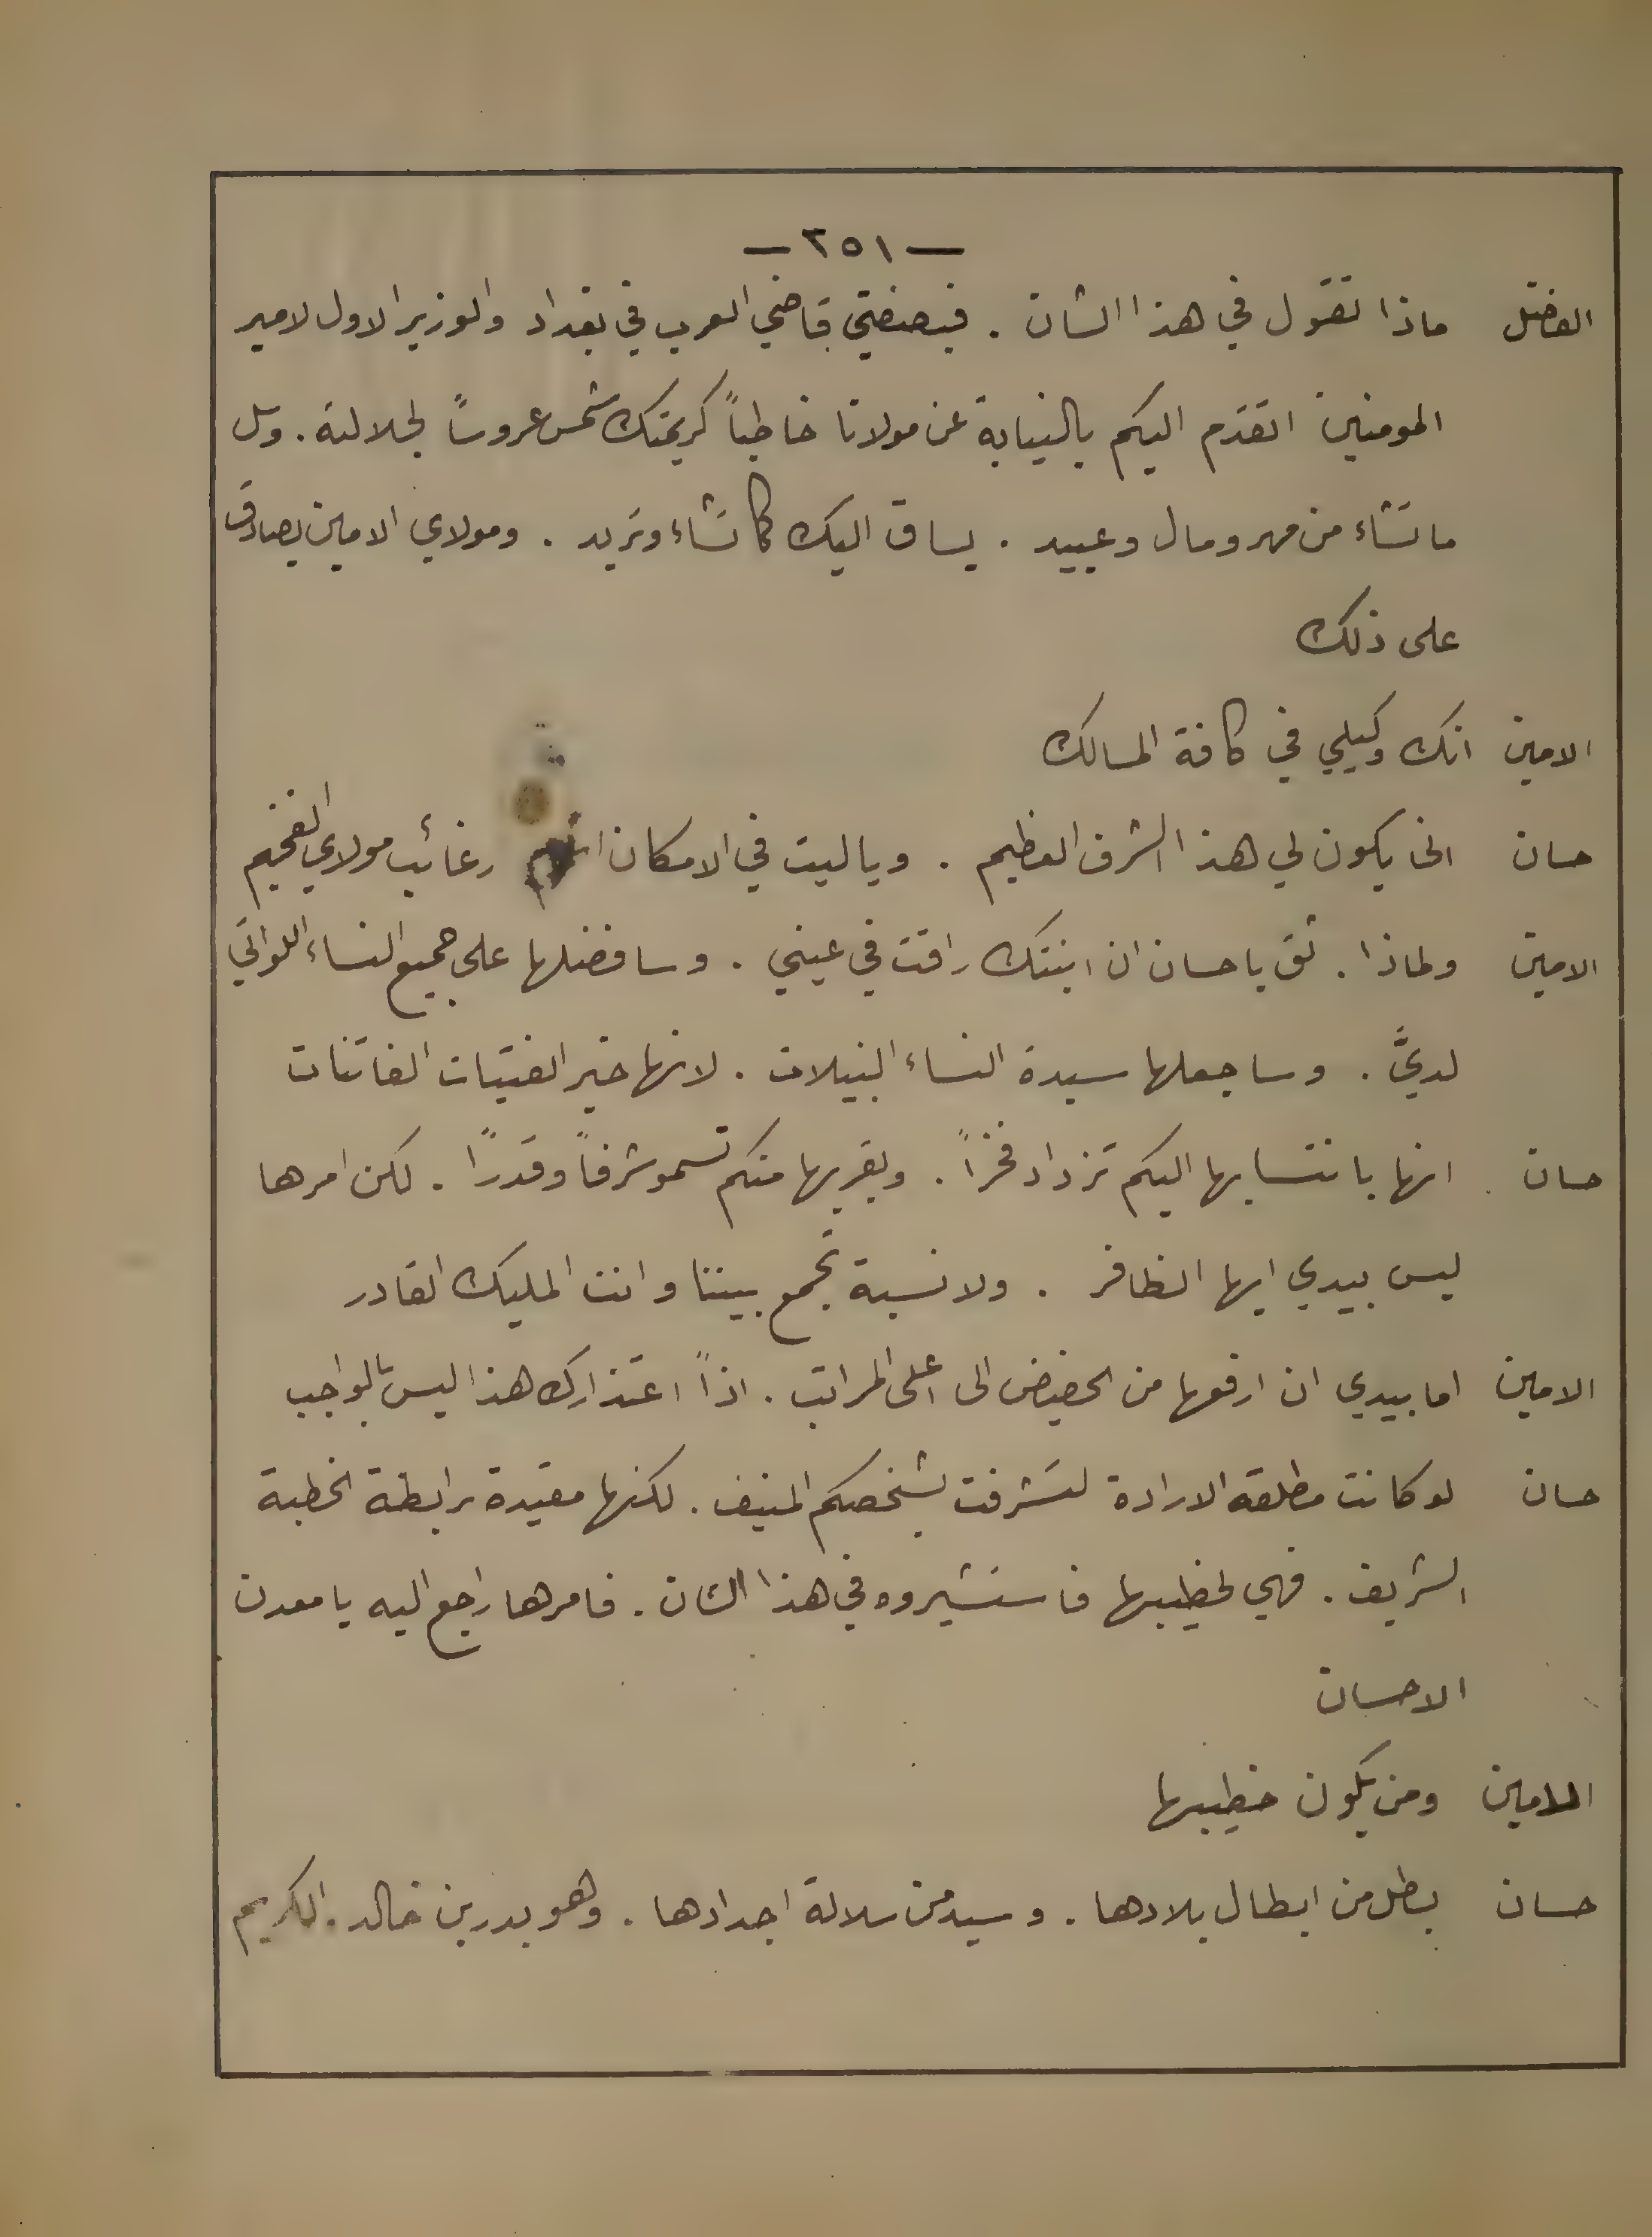 — ٢٥١ —
الفضل ماذا تقول في هذا الشان . فبصفتي قاضي العرب في بغداد والوزير الاول لامير
المومنين اتقدم اليكم بالنيابة عن مولانا خاطباً كريمتك شمس عروساً لجلالته . وسل
ما تشاء من مهر ومال وعبيد . يساق اليك كما تشاء وتريد . ومولاي الامين يصادق
على ذلك
الامين انك وكيلي في كافة المسالك
حسان انى يكون لي هذا الشرف العظيم . ويا ليت في الامكان رغائب مولاي الفخيم
الامين ولماذا . ثق يا حسان ان ابنتك راقت في عيني . وسافضلها على جميع النساء اللواتي
لديَّ . وساجعلها سيدة النساء النبيلات . لانها خير الفتيات الفاتنات
حسان انها بانتسابها اليكم تزداد فخراً . وبقربها منكم تسمو شرفاً وقدرًا . لكن امرها
ليس بيدي ايها الظافر . ولا نسبة تجمع بيننا وانت المليك القادر
الامين اما بيدي ان ارفعها من الحضيض الى اعلى المراتب . اذاً اعتذارك هذا ليس بالواجب
حسان لو كانت مطلقة الارادة لتشرفت بشخصكم المنيف . لكنها مقيدة برابطة الخطبة
الشريف . فهي لخطيبها فاستشيروه في هذا الشان . فامرها راجع اليه يا معدن
الاحسان
الامين ومن يكون خطيبها
حسان بطل من ابطال بلادها . وسيد من سلالة اجدادها . وهو بدر بن خالد الكريم